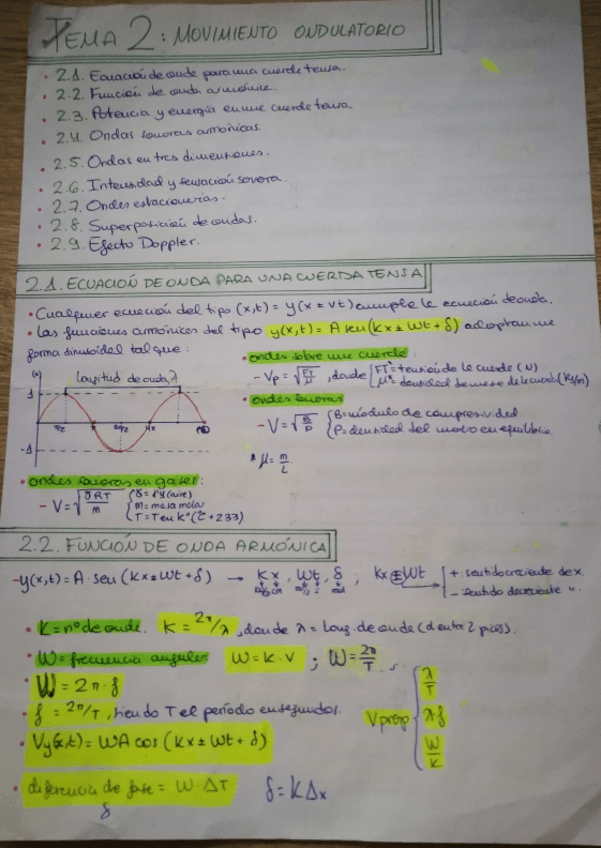 TEMA 2: MOVIMIENTO ONDULATORIO
• 2.1. Ecuación de onda para una cuerda tensa.
• 2.2. Función de onda armónica.
• 2.3. Potencia y energía en una cuerda tensa
• 2.4. Ondas sonoras armónicas.
• 2.5. Ondas en tres dimensiones.
• 2.6. Intensidad y sensación sonora.
• 2.7. Ondas estacionarias.
• 2.8. Superposición de ondas.
• 2.9. Efecto Doppler.
2.1. ECUACIÓN DE ONDA PARA UNA CUERDA TENSA
• Cualquier ecuación del tipo (x,t) = y(x ± vt) cumple la ecuación de onda.
• Las funciones armónicas del tipo y(x,t) = A sen(kx ± Wt + δ) adoptan una
forma sinusoidal tal que:
• ondas sobre una cuerda:
- Vp = √FT/μ, donde FT = tensión de la cuerda (N)
μ = densidad de masa de la cuerda (kg/m)
Longitud de onda, λ
1
-1
• ondas sonoras
- V = √B/ρ B = módulo de compresividad
ρ = densidad del medio en equilibrio.
* μ = m/L
• ondas sonoras en gases:
- V = √γRT/m γ = 1'4 (aire)
m = masa molar
T = T en Kº (ºC + 233)
2.2. FUNCIÓN DE ONDA ARMÓNICA
- y(x,t) = A · sen(kx ± Wt + δ) → kx, Wt, δ ; kx ± Wt + sentido creciente de x.
- sentido decreciente ".
• K = nº de onda. K = 2π/λ, donde λ = long. de onda (d entre 2 picos).
• W = frecuencia angular W = k · v ; W = 2π/T
• W = 2π · f
• f = 2π/T, siendo T el período en segundos.
Vprop λ/T
λf
W/k
• Vy(x,t) = WA cos(kx ± Wt + δ)
• diferencia de fase = W · ΔT δ = kΔx
δ